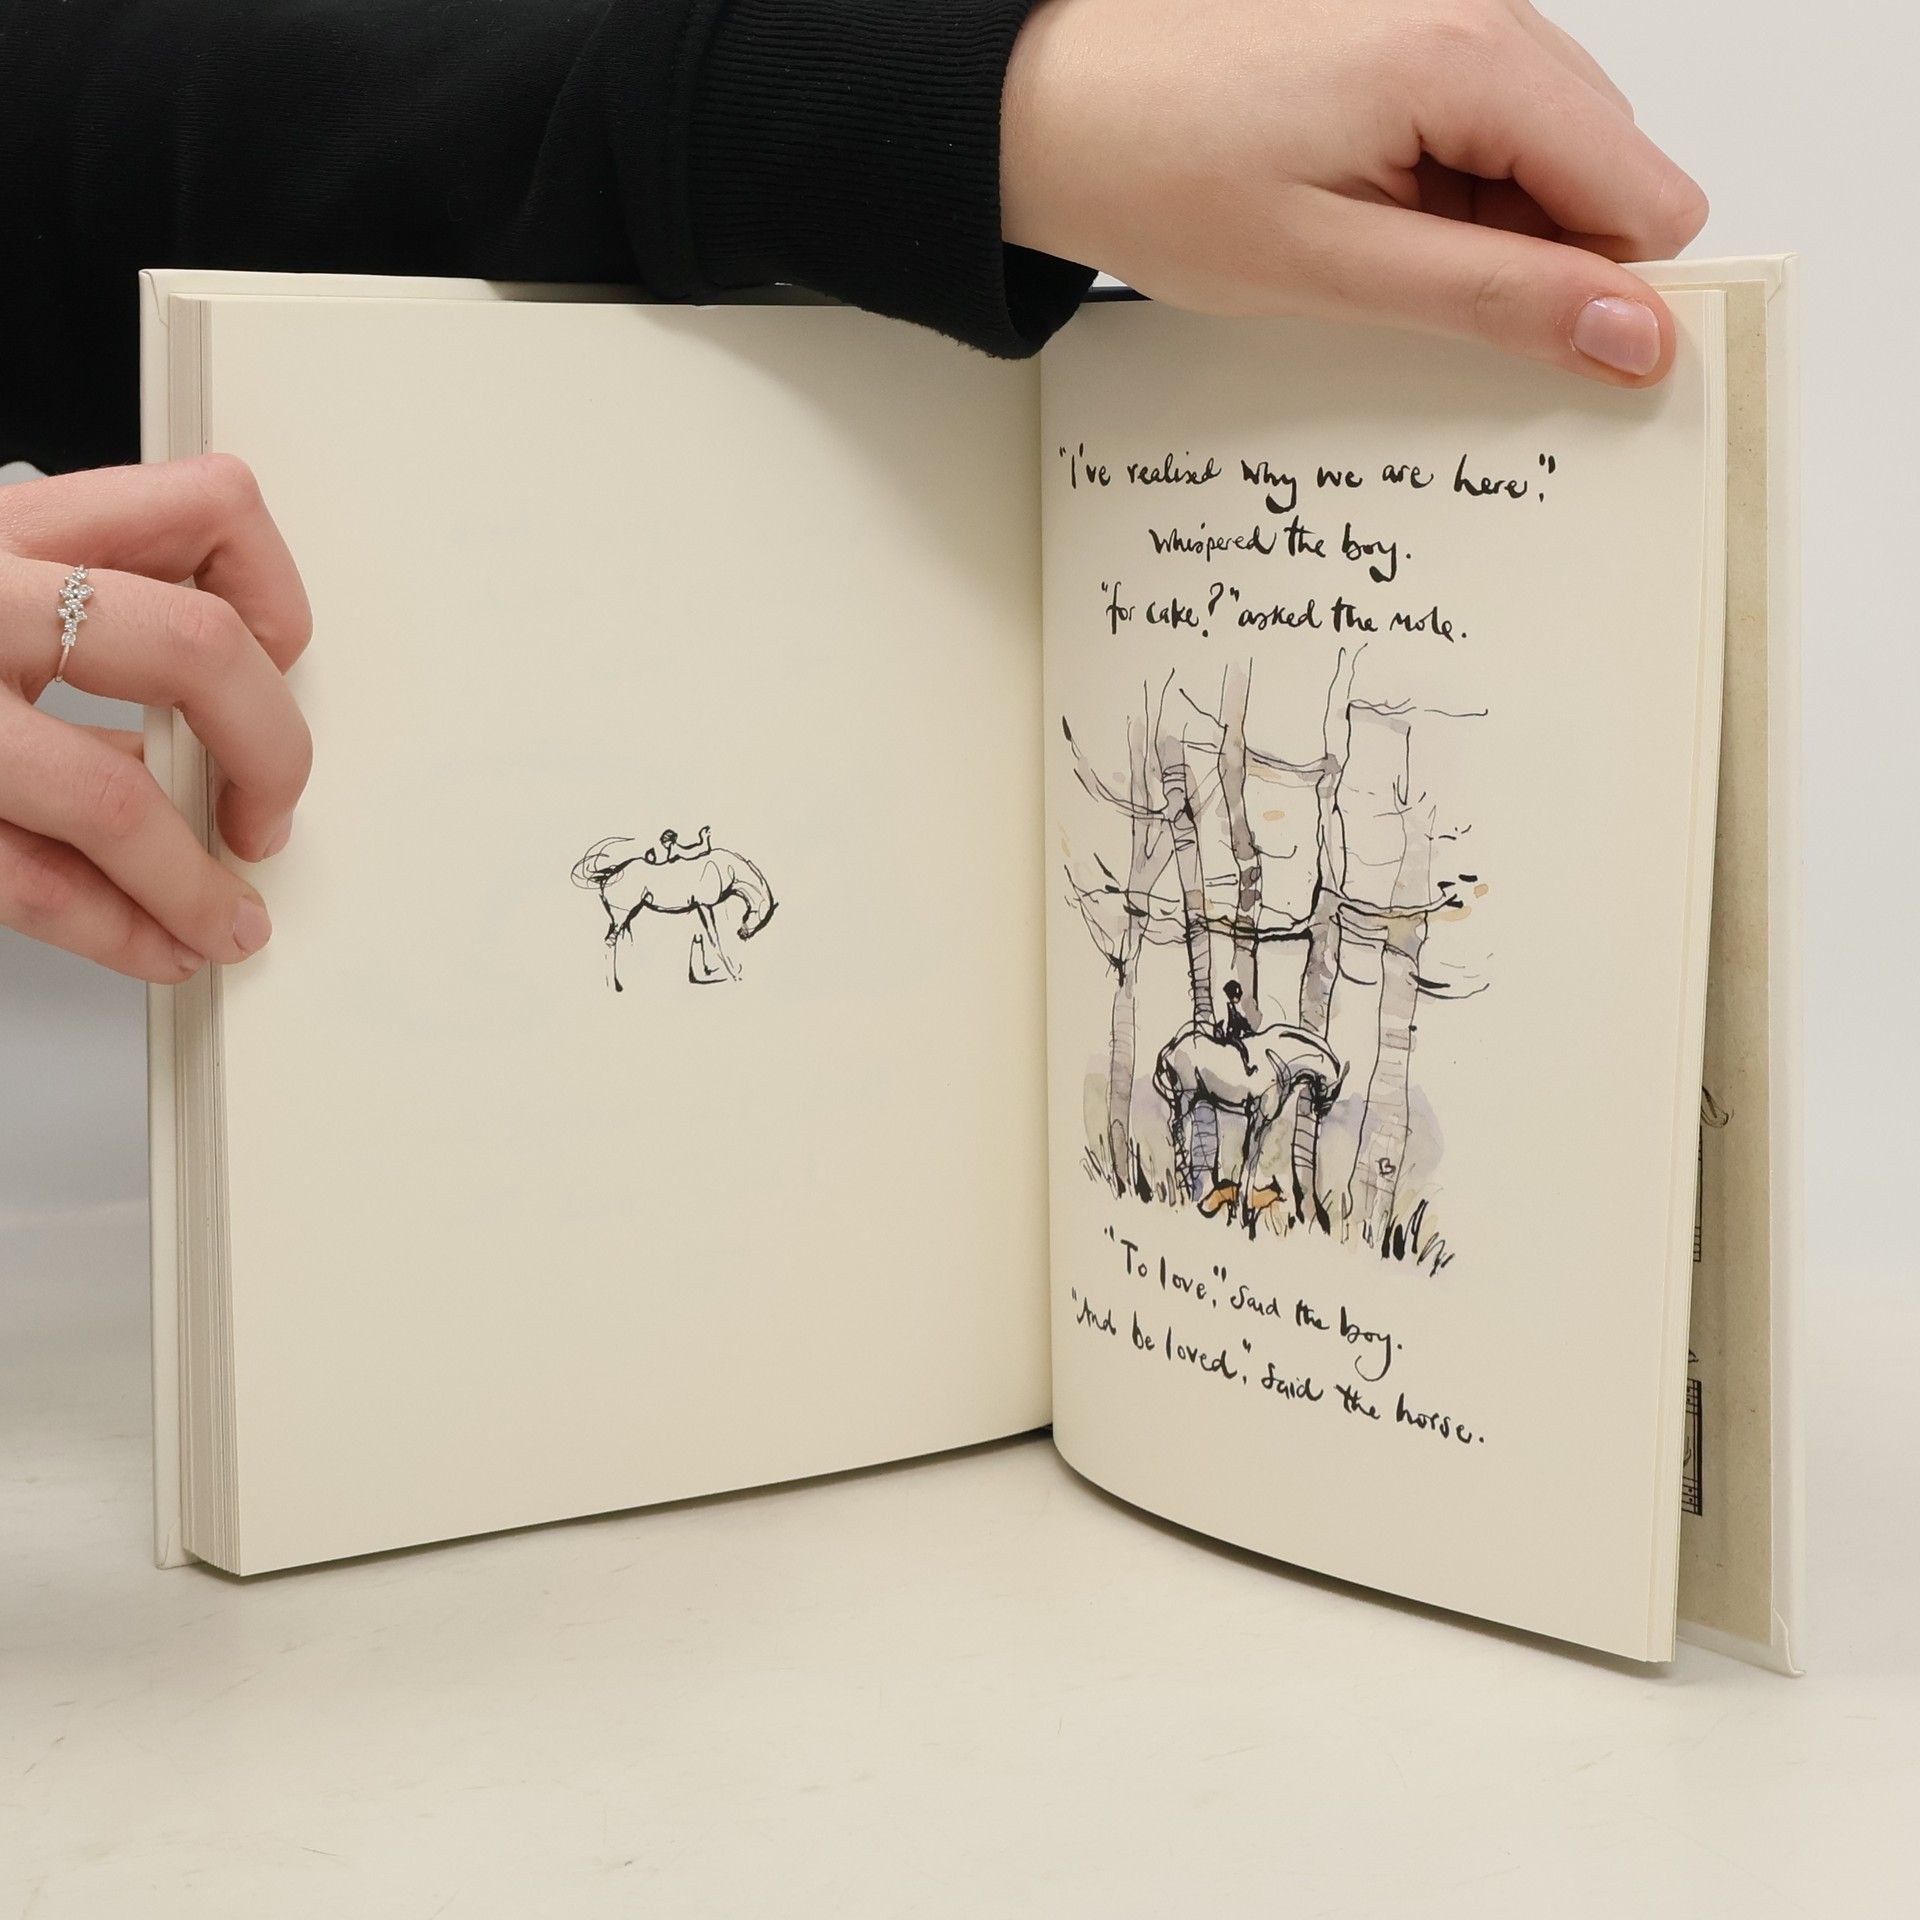 "I've realised why we are here,"
whispered the boy.
"for cake?" asked the mole.
B
"To love," said the boy.
"And be loved," said the horse.